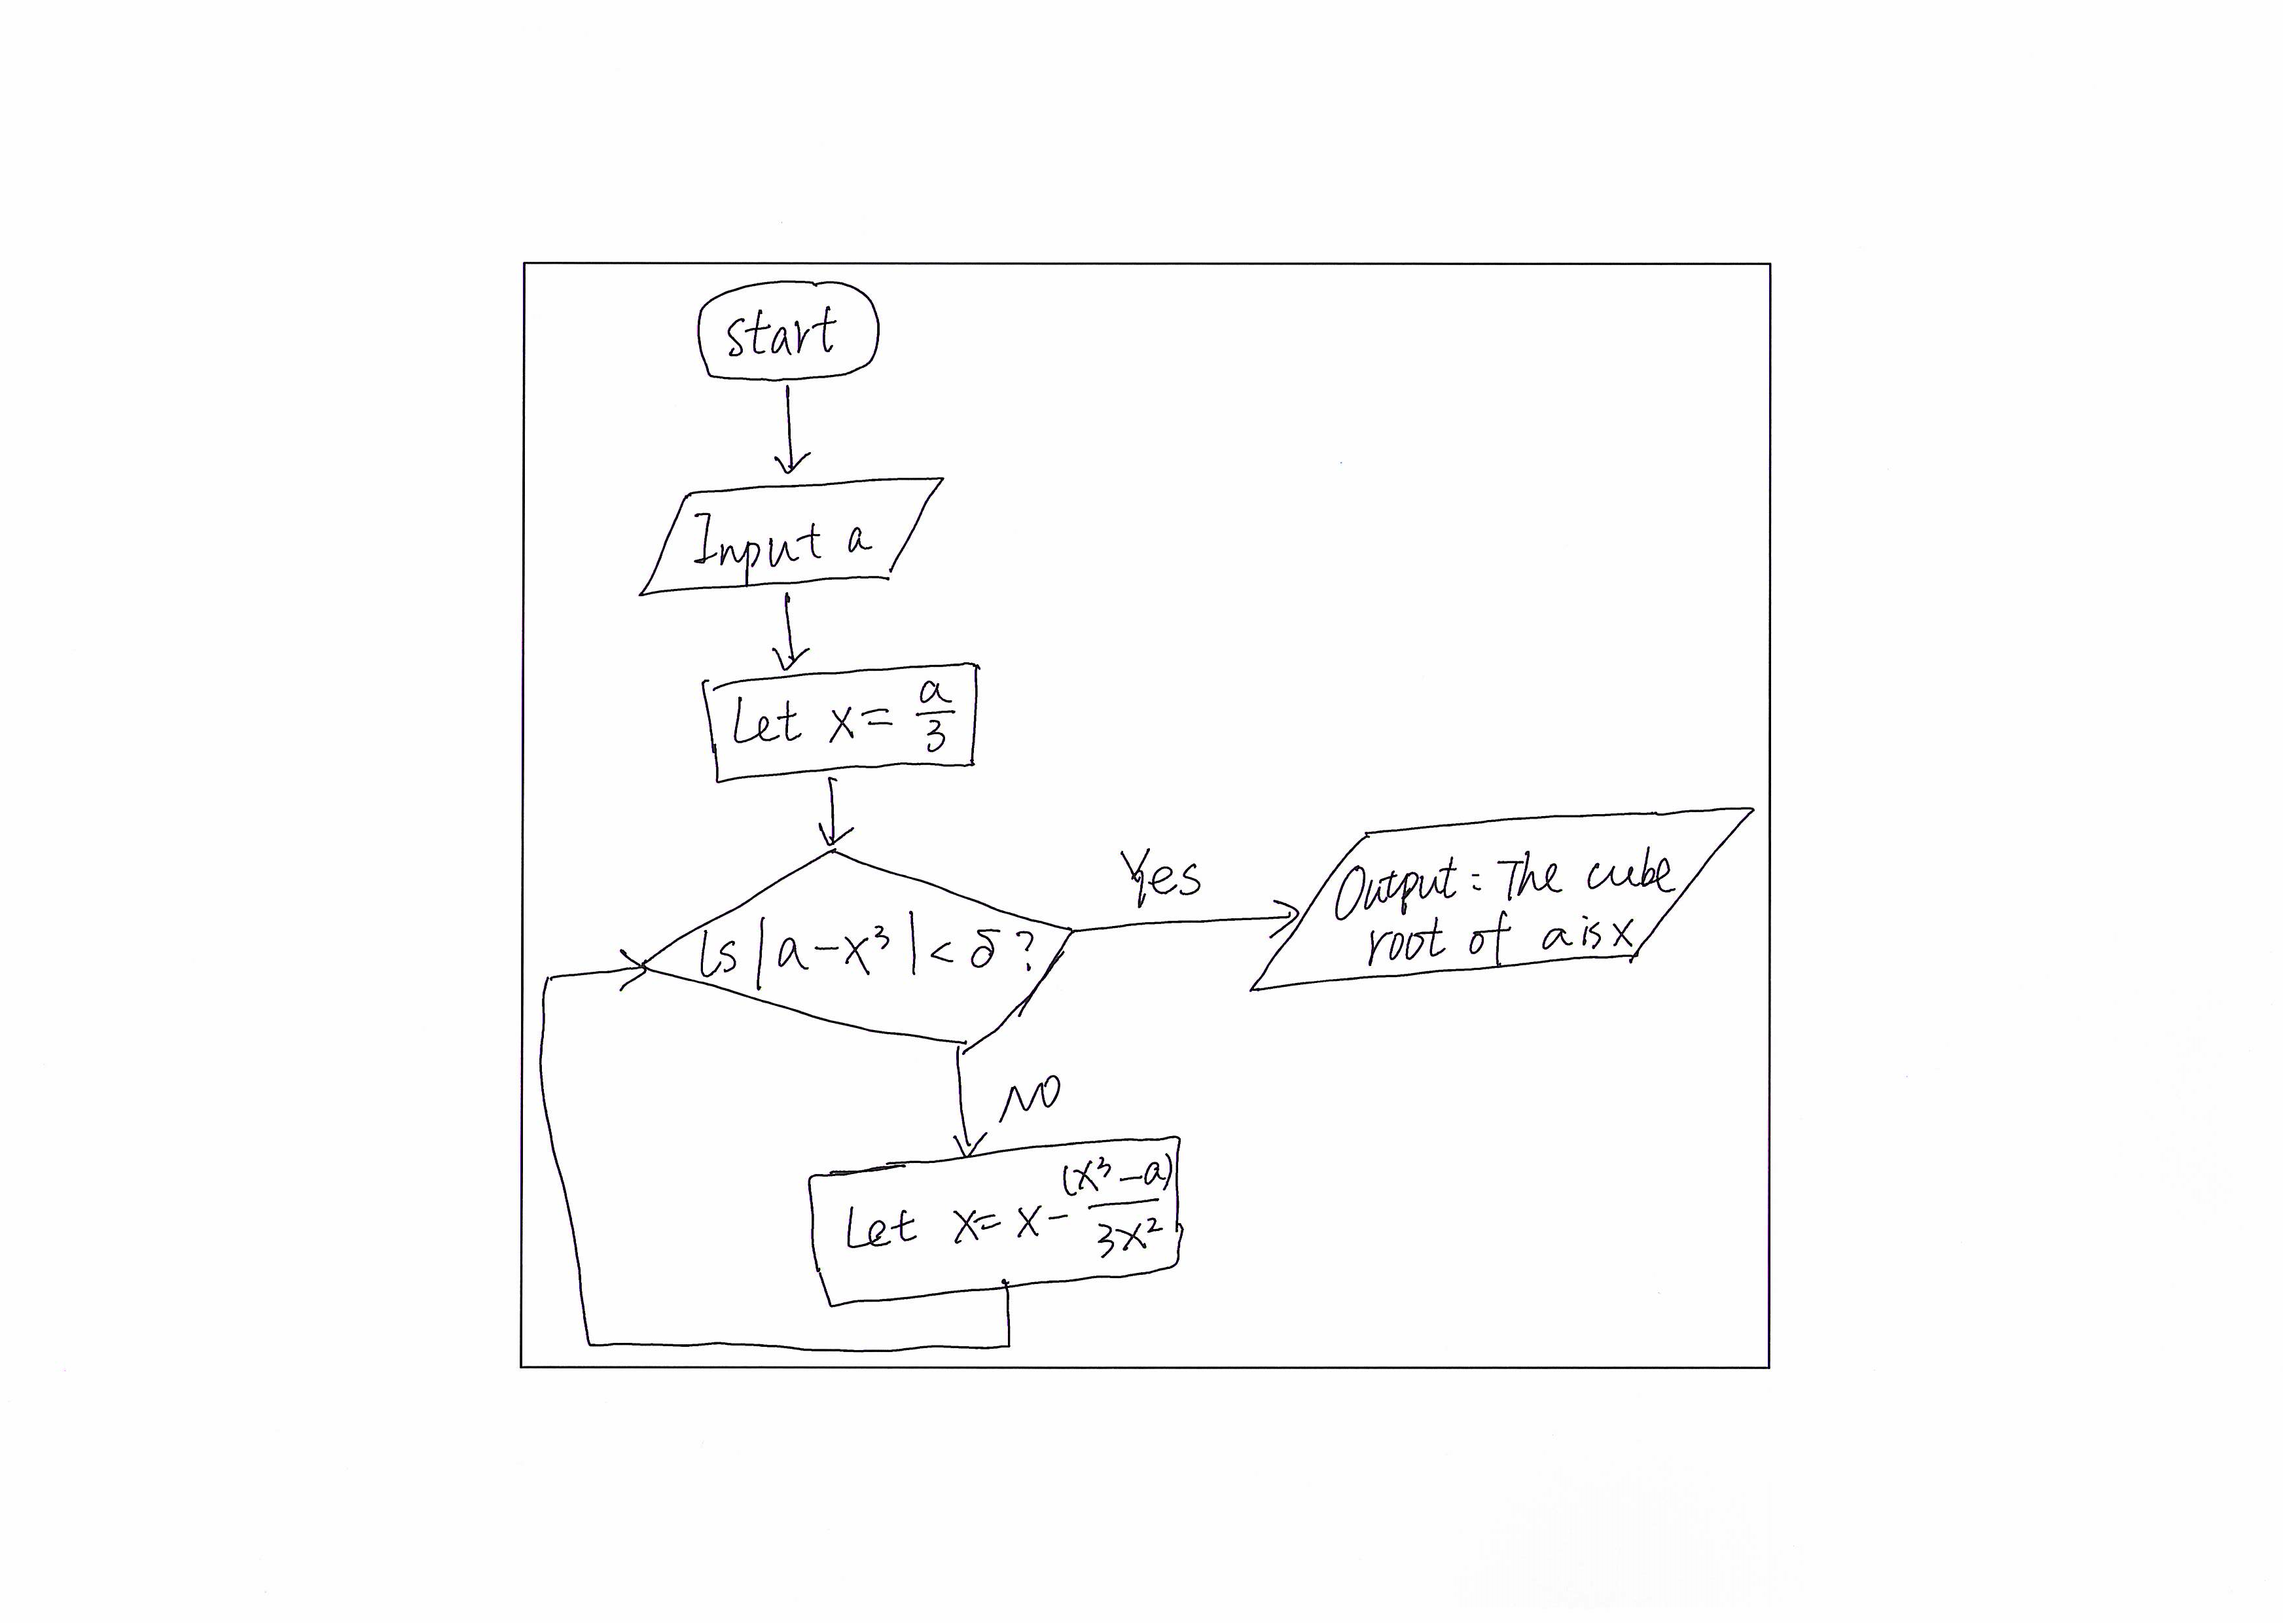 start
Input a
Let x = a/3
Is |a-x³| < δ ?
Yes
Output: The cube
root of a is x
NO
Let x = x - (x³-a)/3x²